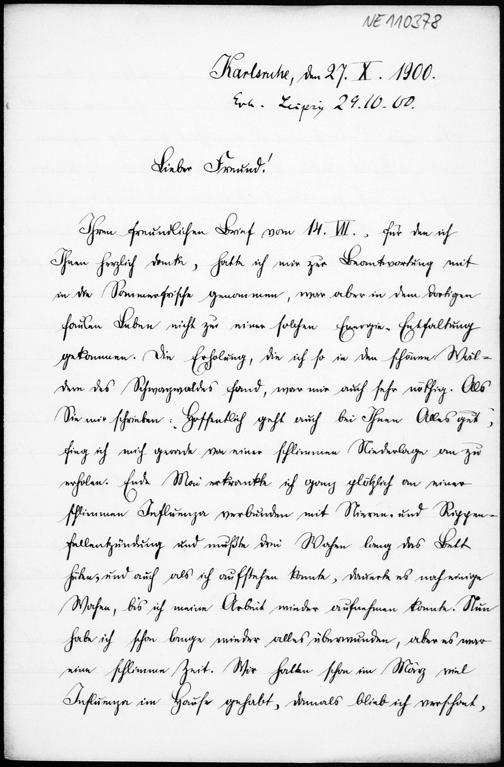 NE 110378
Karlsruhe, den 27. X. 1900.
Erh. Leipzig 29.10.00.
Lieber Freund!
Ihren freundlichen Brief vom 14. VII., für den ich
Ihnen herzlich danke, hatte ich mir zur Beantwortung mit
in die Sommerfrische genommen, war aber in dem dortigen
faulen Leben nicht zu einer solchen Energie-Entfaltung
gekommen. Die Erholung, die ich so in den schönen Wäl-
dern des Schwarzwaldes fand, war mir auch sehr nöthig. Als
Sie mir schrieben: „Hoffentlich geht auch bei Ihnen Alles gut“,
fing ich mich gerade von einer schlimmen Niederlage an zu
erholen. Ende Mai erkrankte ich ganz plötzlich an einer
schlimmen Influenza verbunden mit Nieren- und Rippen-
fellentzündung und mußte drei Wochen lang das Bett
hüten, und auch als ich aufstehen konnte, dauerte es noch einige
Wochen, bis ich meine Arbeit wieder aufnehmen konnte. Nun
habe ich schon lange wieder alles überwunden, aber es war
eine schlimme Zeit. Wir hatten schon im März viel
Influenza im Hause gehabt, damals blieb ich verschont,